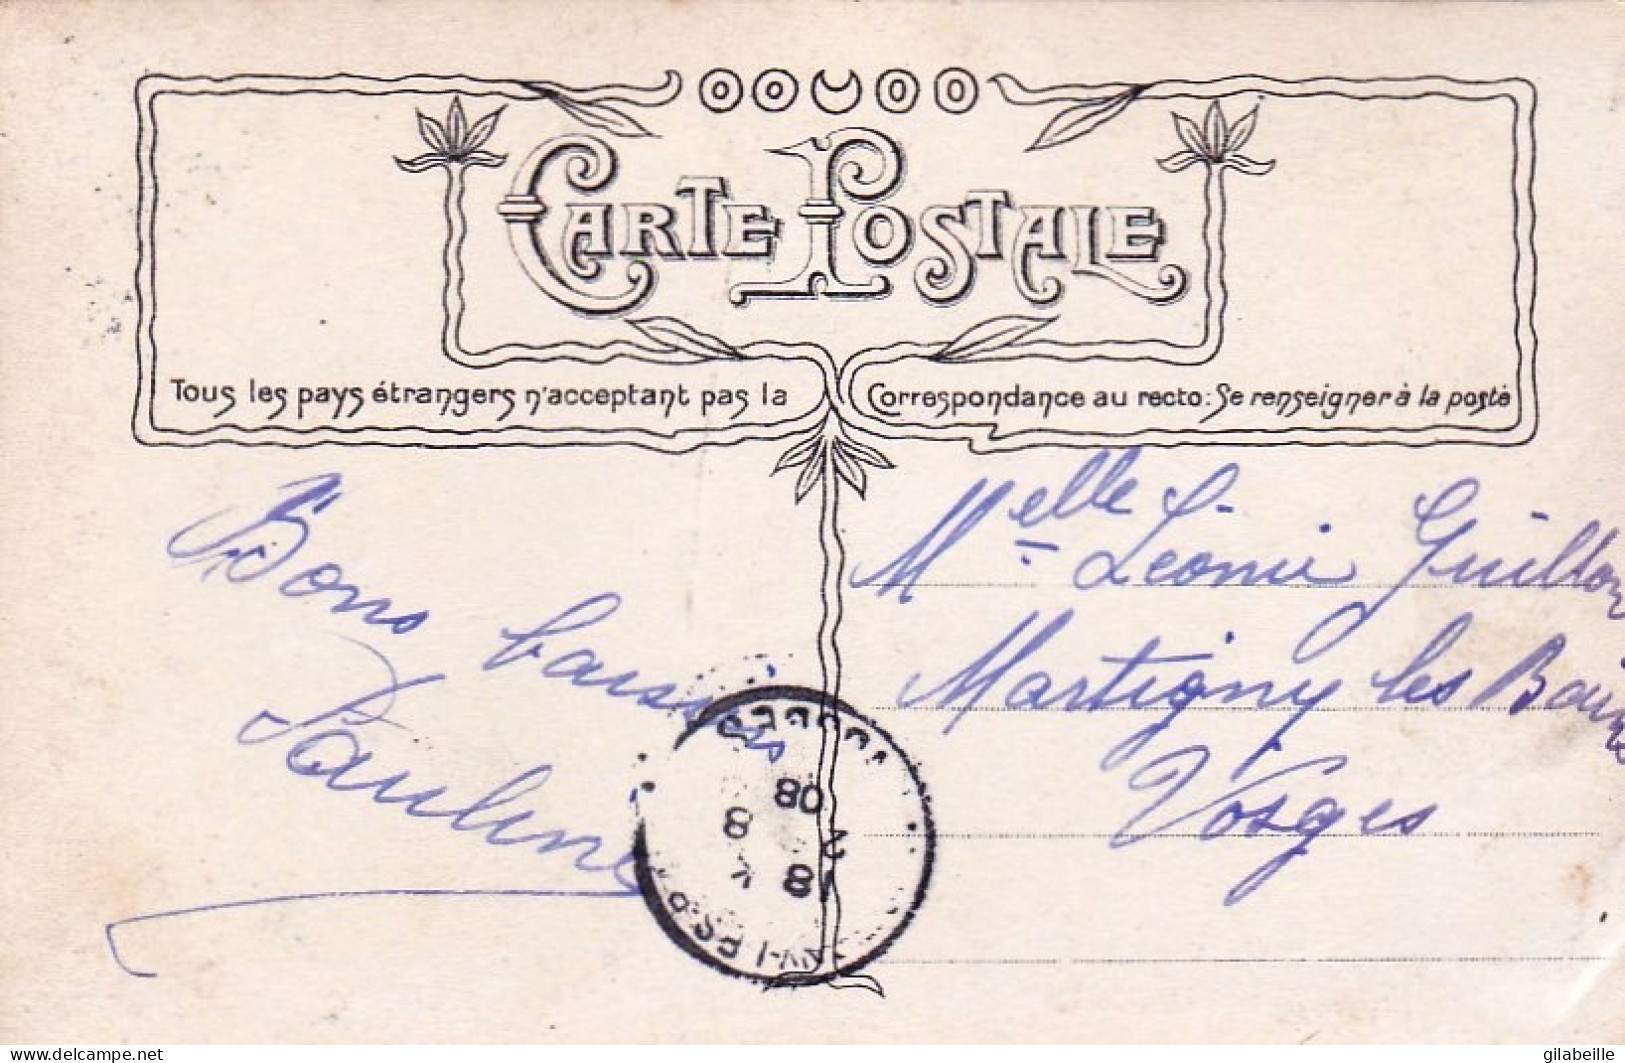 CARTE POSTALE
Tous les pays étrangers n'acceptant pas la Correspondance au recto: Se renseigner à la poste
Bons baisers
Pauline
Melle Leonie Guillon
Martigny les Bains
Vosges
VOSGES
08
8 2
18
delcampe.net
gilabeille